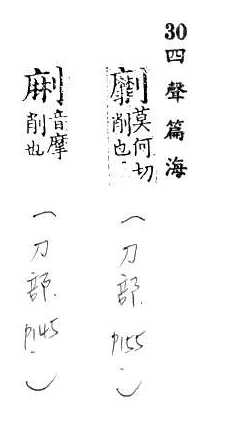 30 四聲篇海
劘 莫何切
削也
(刀部. p155.)
音摩
削也
(刀部. p145.)